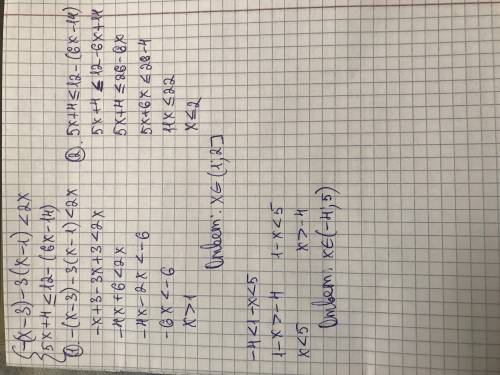 {-(x-3)-3(x-1)<2x
{5x+4≤12-(6x-14)
①.-(x-3)-3(x-1)<2x
-x+3-3x+3<2x
-4x+6<2x
-4x-2x<-6
-6x<-6
x>1
②. 5x+4≤12-(6x-14)
5x+4≤12-6x+14
5x+4≤26-6x
5x+6x≤26-4
11x≤22
x≤2
Ответ: x∈(1;2]
-4<1-x<5
1-x>-4 1-x<5
x<5 x>-4
Ответ: x∈(-4;5)